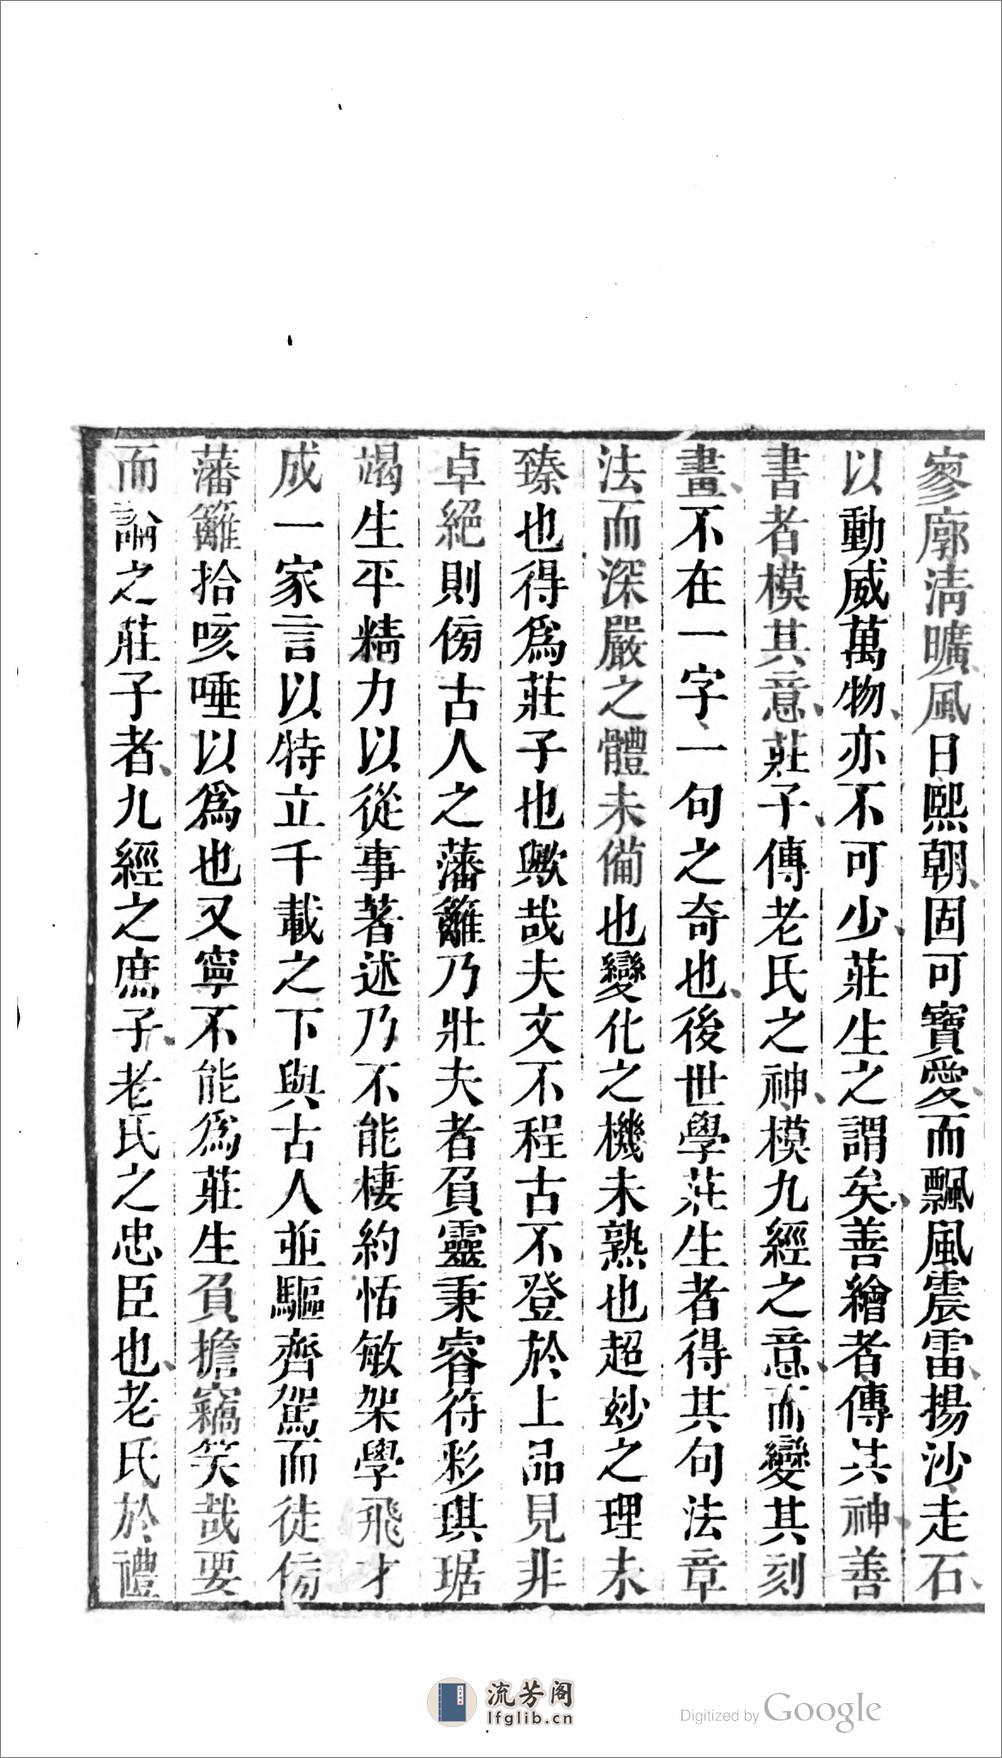 寥廓淸曠風日熙朝固可寶愛而飄風震雷揚沙走石
以動威萬物亦不可少莊生之謂矣善繪者傳其神善
書者模其意莊子傳老氏之神模九經之意而變其刻
畫不在一字一句之奇也後世學莊生者得其句法章
法而深嚴之體未備也變化之機未熟也超玅之理未
臻也得爲莊子也歟哉夫文不程古不登於上品見非
卓絕則傍古人之藩籬乃壯夫者負靈秉睿符彩琪琚
竭生平精力以從事著述乃不能棲約恬敏架學飛才
成一家言以特立千載之下與古人並驅齊駕而徒傍
藩籬拾咳唾以爲也又寧不能爲莊生負擔竊笑哉要
而論之莊子者九經之庶子老氏之忠臣也老氏於禮
流芳阁
lfglib.cn
Digitized by Google